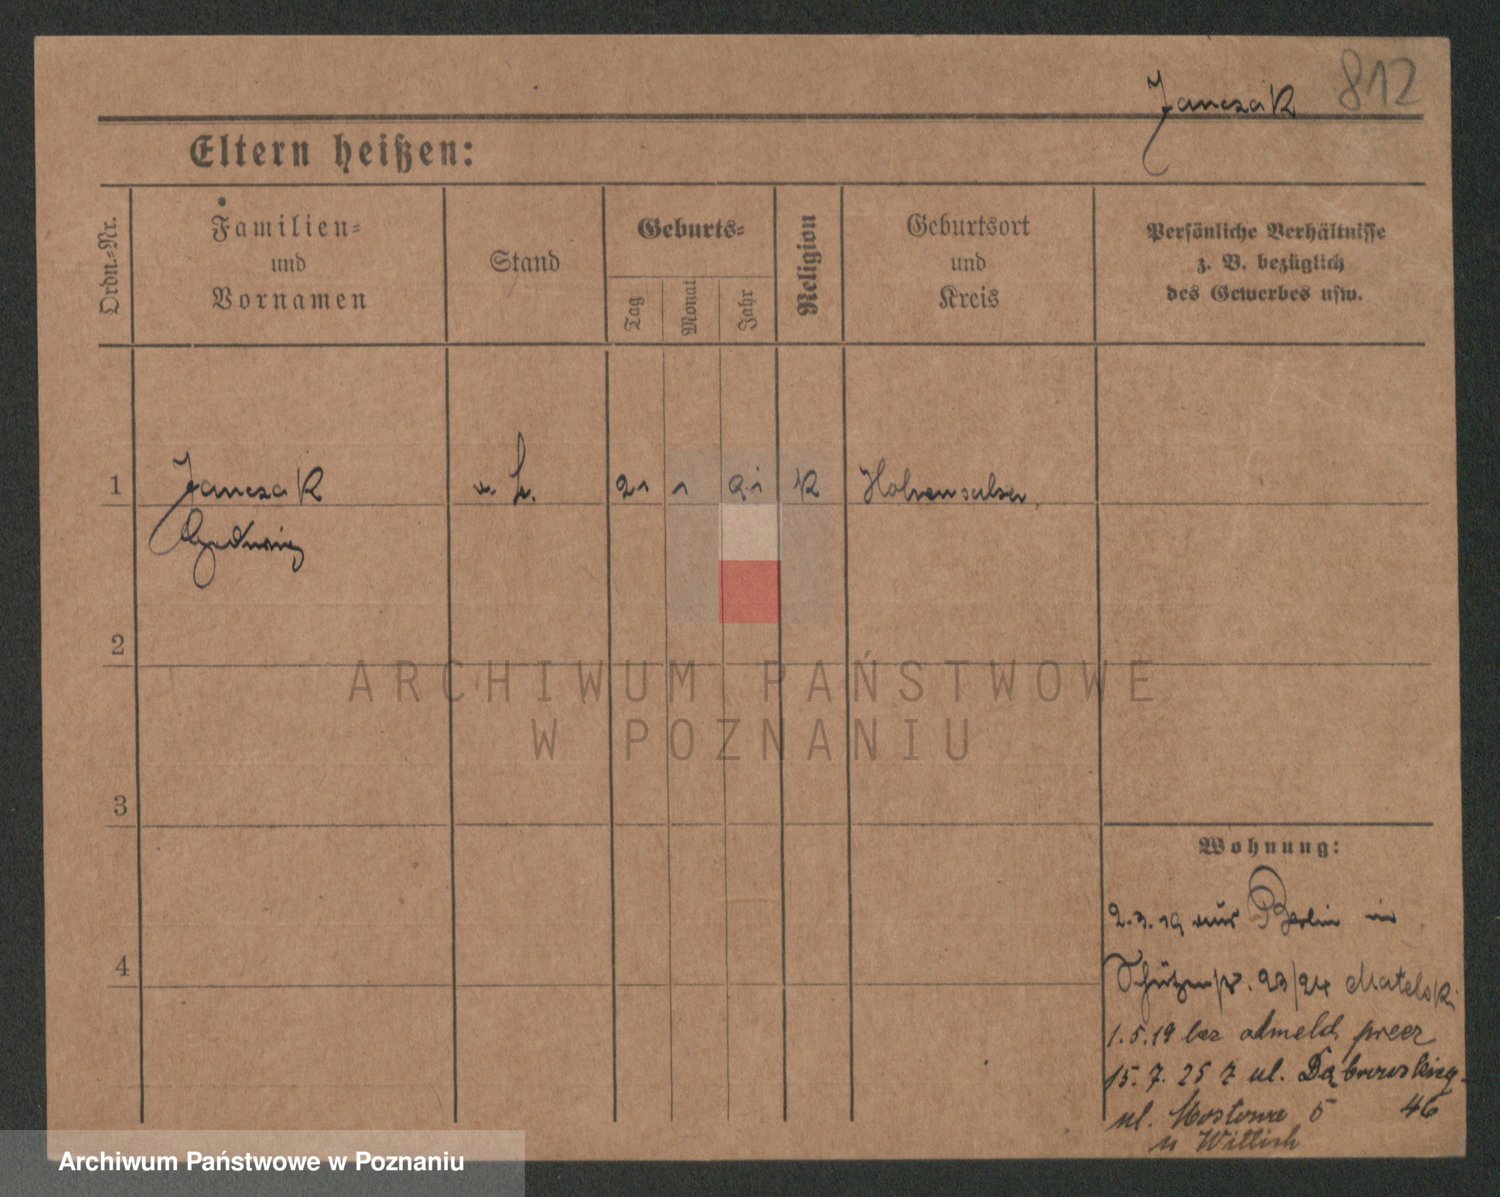 812
Janczak
Eltern heißen:
Ordn.-Nr.
Familien-
und
Vornamen
Stand
Geburts-
Tag
Monat
Jahr
Religion
Geburtsort
und
Kreis
Persönliche Verhältnisse
z. B. bezüglich
des Gewerbes usw.
1
Janczak
21 1 91 K Hohensalza
2
ARCHIWUM PAŃSTWOWE
W POZNANIU
3
4
Wohnung:
2.3.19 aus Berlin in
Schützenstr. 23/24 Matelski
1.5.19 bez odmeld. precz
15.7.25 z ul. Dąbrowskieg.
46
ul. Mostowa 5
u Wittich
Archiwum Państwowe w Poznaniu